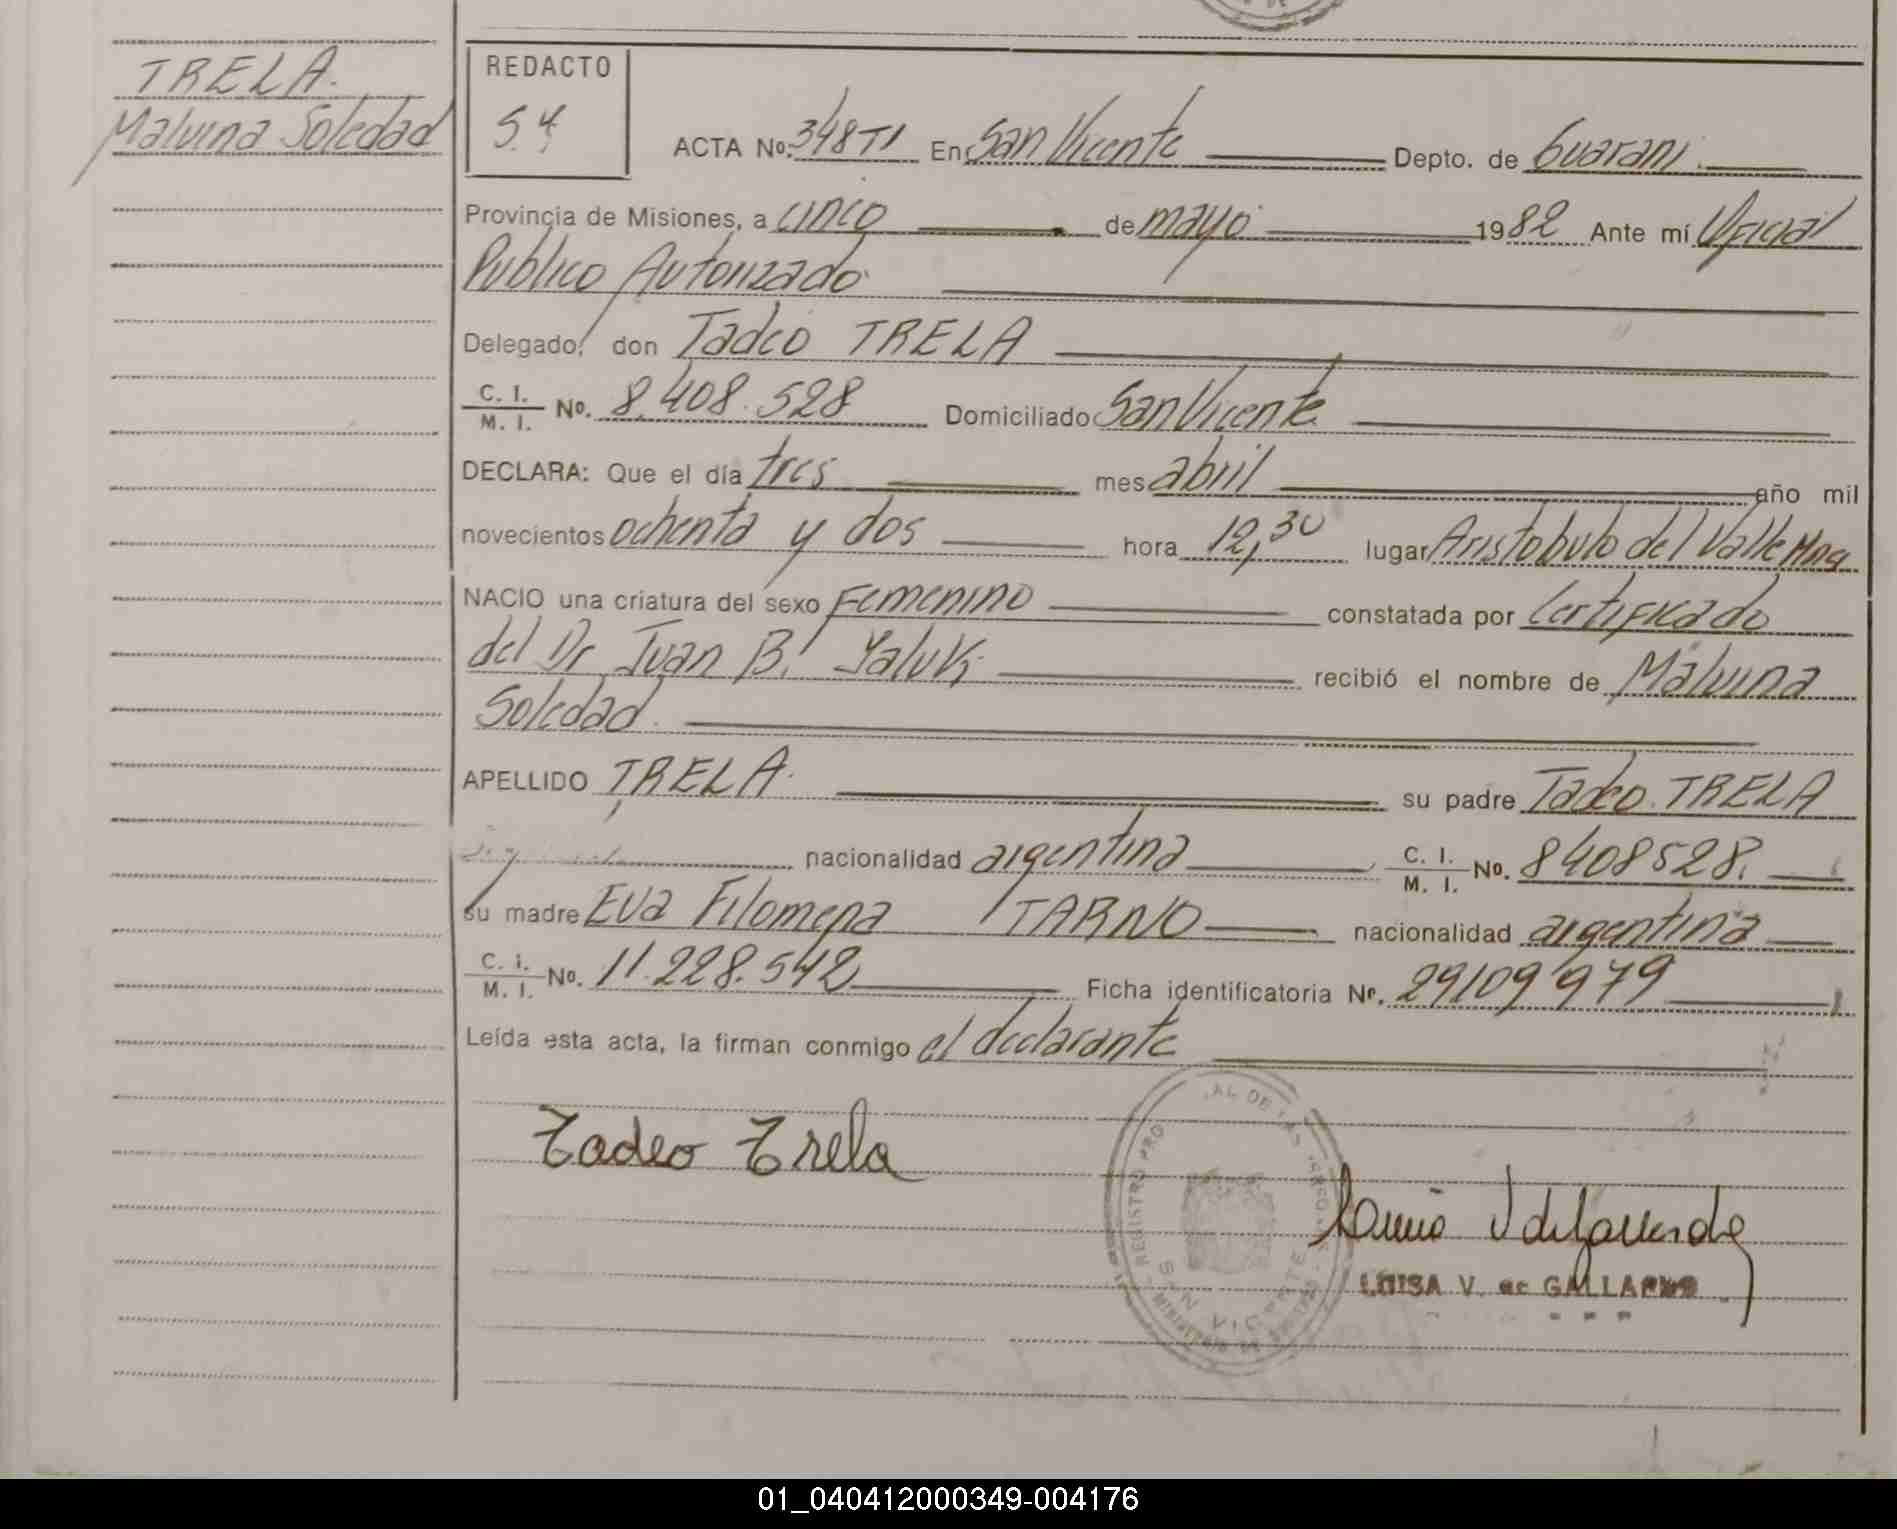 TRELA.
Malvina Soledad
REDACTO
ACTA No. 348 TI En San Vicente Depto. de Guarani.
Provincia de Misiones, a cinco de mayo 1982 Ante mí Oficial
Publico Autorizado
Delegado, don Tadeo TRELA
C. I. / M. I. No. 8.408.528 Domiciliado San Vicente
DECLARA: Que el día tres mes abril año mil
novecientos ochenta y dos hora 12,30 lugar Aristobulo del Valle Mnes
NACIO una criatura del sexo Femenino constatada por Certificado
del Dr Juan B. recibió el nombre de Malvina
Soledad.
APELLIDO TRELA. su padre Tadeo TRELA
nacionalidad argentina C. I. / M. I. No. 8408528.
su madre Eva Filomena TARNO nacionalidad argentina
C. I. / M. I. No. 11.228.542 Ficha identificatoria No. 29109979
Leída esta acta, la firman conmigo el declarante
Tadeo Trela
REGISTRO PRO AL DE LAS PERSONAS
SAN VICENTE
LUISA V. de GALLARDO
01_040412000349-004176